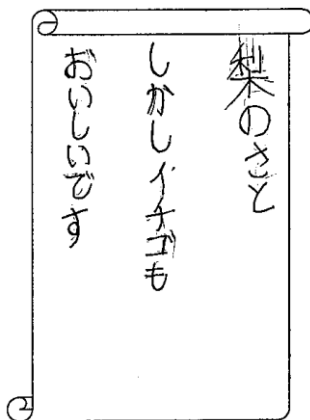 梨のさと
しかしイチゴも
おいしいです